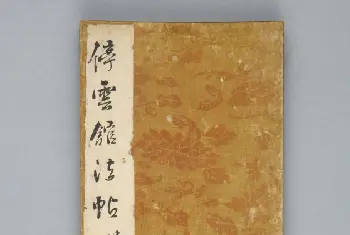 停雲館法帖